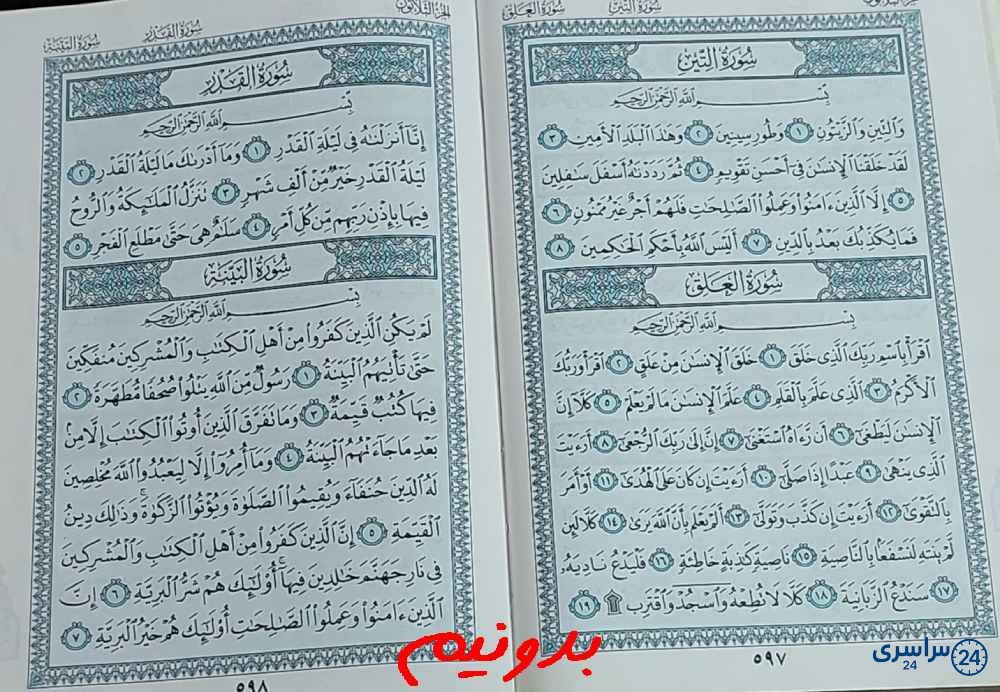 سُورَةُ التِّينِ
سُورَةُ العَلَقِ
سُورَةُ التِّينِ
بِسْمِ اللَّهِ الرَّحْمَٰنِ الرَّحِيمِ
وَالتِّينِ وَالزَّيْتُونِ ١ وَطُورِ سِينِينَ ٢ وَهَٰذَا الْبَلَدِ الْأَمِينِ ٣
لَقَدْ خَلَقْنَا الْإِنسَٰنَ فِي أَحْسَنِ تَقْوِيمٍ ٤ ثُمَّ رَدَدْنَٰهُ أَسْفَلَ سَٰفِلِينَ
٥ إِلَّا الَّذِينَ ءَامَنُوا وَعَمِلُوا الصَّٰلِحَٰتِ فَلَهُمْ أَجْرٌ غَيْرُ مَمْنُونٍ ٦
فَمَا يُكَذِّبُكَ بَعْدُ بِالدِّينِ ٧ أَلَيْسَ اللَّهُ بِأَحْكَمِ الْحَٰكِمِينَ ٨
سُورَةُ العَلَقِ
بِسْمِ اللَّهِ الرَّحْمَٰنِ الرَّحِيمِ
اقْرَأْ بِاسْمِ رَبِّكَ الَّذِي خَلَقَ ١ خَلَقَ الْإِنسَٰنَ مِنْ عَلَقٍ ٢ اقْرَأْ وَرَبُّكَ
الْأَكْرَمُ ٣ الَّذِي عَلَّمَ بِالْقَلَمِ ٤ عَلَّمَ الْإِنسَٰنَ مَا لَمْ يَعْلَمْ ٥ كَلَّا إِنَّ
الْإِنسَٰنَ لَيَطْغَىٰ ٦ أَن رَّءَاهُ اسْتَغْنَىٰ ٧ إِنَّ إِلَىٰ رَبِّكَ الرُّجْعَىٰ ٨ أَرَءَيْتَ
الَّذِي يَنْهَىٰ ٩ عَبْدًا إِذَا صَلَّىٰ ١٠ أَرَءَيْتَ إِن كَانَ عَلَى الْهُدَىٰ ١١ أَوْ أَمَرَ
بِالتَّقْوَىٰ ١٢ أَرَءَيْتَ إِن كَذَّبَ وَتَوَلَّىٰ ١٣ أَلَمْ يَعْلَم بِأَنَّ اللَّهَ يَرَىٰ ١٤ كَلَّا لَئِن
لَّمْ يَنتَهِ لَنَسْفَعًا بِالنَّاصِيَةِ ١٥ نَاصِيَةٍ كَٰذِبَةٍ خَاطِئَةٍ ١٦ فَلْيَدْعُ نَادِيَهُ
١٧ سَنَدْعُ الزَّبَانِيَةَ ١٨ كَلَّا لَا تُطِعْهُ وَاسْجُدْ وَاقْتَرِب ۩ ١٩
٥٩٧
الجُزْءُ الثَّلَاثُونَ
سُورَةُ القَدْرِ
سُورَةُ البَيِّنَةِ
سُورَةُ القَدْرِ
بِسْمِ اللَّهِ الرَّحْمَٰنِ الرَّحِيمِ
إِنَّا أَنزَلْنَٰهُ فِي لَيْلَةِ الْقَدْرِ ١ وَمَا أَدْرَىٰكَ مَا لَيْلَةُ الْقَدْرِ ٢
لَيْلَةُ الْقَدْرِ خَيْرٌ مِّنْ أَلْفِ شَهْرٍ ٣ تَنَزَّلُ الْمَلَٰئِكَةُ وَالرُّوحُ
فِيهَا بِإِذْنِ رَبِّهِم مِّن كُلِّ أَمْرٍ ٤ سَلَٰمٌ هِيَ حَتَّىٰ مَطْلَعِ الْفَجْرِ ٥
سُورَةُ البَيِّنَةِ
بِسْمِ اللَّهِ الرَّحْمَٰنِ الرَّحِيمِ
لَمْ يَكُنِ الَّذِينَ كَفَرُوا مِنْ أَهْلِ الْكِتَٰبِ وَالْمُشْرِكِينَ مُنفَكِّينَ
حَتَّىٰ تَأْتِيَهُمُ الْبَيِّنَةُ ١ رَسُولٌ مِّنَ اللَّهِ يَتْلُوا صُحُفًا مُّطَهَّرَةً ٢
فِيهَا كُتُبٌ قَيِّمَةٌ ٣ وَمَا تَفَرَّقَ الَّذِينَ أُوتُوا الْكِتَٰبَ إِلَّا مِنۢ
بَعْدِ مَا جَاءَتْهُمُ الْبَيِّنَةُ ٤ وَمَا أُمِرُوا إِلَّا لِيَعْبُدُوا اللَّهَ مُخْلِصِينَ
لَهُ الدِّينَ حُنَفَاءَ وَيُقِيمُوا الصَّلَوٰةَ وَيُؤْتُوا الزَّكَوٰةَ ۚ وَذَٰلِكَ دِينُ
الْقَيِّمَةِ ٥ إِنَّ الَّذِينَ كَفَرُوا مِنْ أَهْلِ الْكِتَٰبِ وَالْمُشْرِكِينَ
فِي نَارِ جَهَنَّمَ خَٰلِدِينَ فِيهَا ۚ أُولَٰئِكَ هُمْ شَرُّ الْبَرِيَّةِ ٦ إِنَّ
الَّذِينَ ءَامَنُوا وَعَمِلُوا الصَّٰلِحَٰتِ أُولَٰئِكَ هُمْ خَيْرُ الْبَرِيَّةِ ٧
٥٩٨
بدونیم
سراسری 24
24